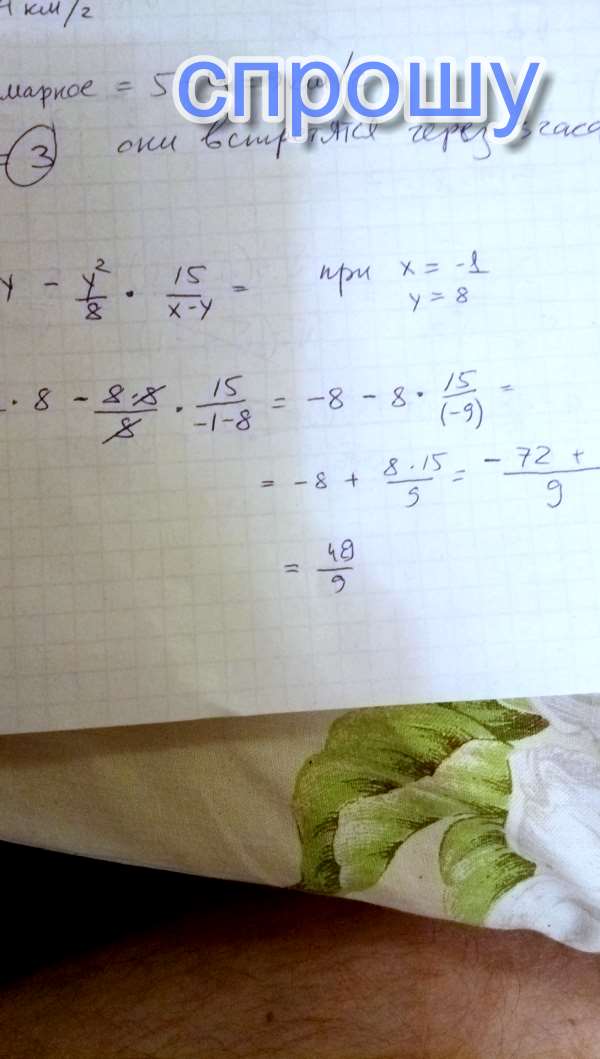 км/г
марное = 5
спрошу
= 3 они встретятся через 3 часа
y - y²/8 · 15/(x-y) = при x = -1
y = 8
· 8 - 8·8/8 · 15/(-1-8) = -8 - 8 · 15/(-9) =
= -8 + 8·15/9 = -72 +/9
= 48/9